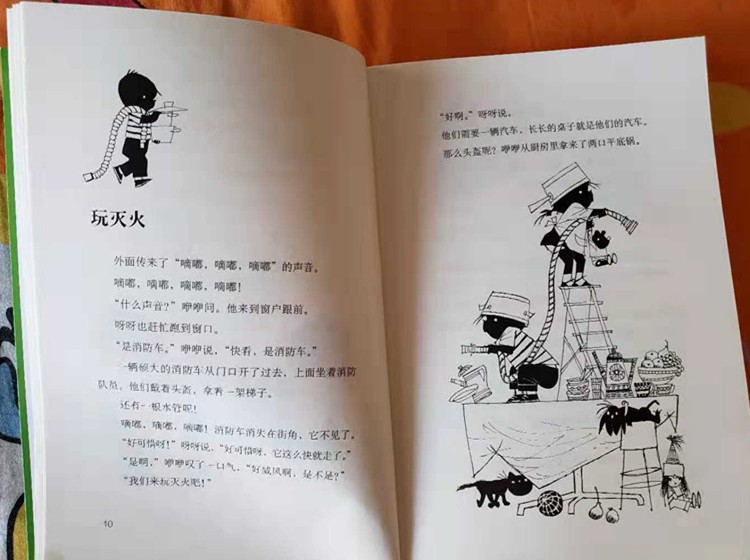 玩灭火
外面传来了“嘀嘟，嘀嘟，嘀嘟”的声音。
嘀嘟，嘀嘟，嘀嘟，嘀嘟！
“什么声音？”咿咿问。他来到窗户跟前。
呀呀也赶忙跑到窗口。
“是消防车。”咿咿说，“快看，是消防车。”
一辆硕大的消防车从门口开了过去，上面坐着消防
队员，他们戴着头盔，拿着一架梯子。
还有一根水管呢！
嘀嘟，嘀嘟，嘀嘟！消防车消失在街角，它不见了。
“好可惜呀！”呀呀说，“好可惜呀，它这么快就走了。”
“是啊，”咿咿叹了一口气，“好威风啊，是不是？”
“我们来玩灭火吧！”
10
“好啊。”呀呀说。
他们需要一辆汽车，长长的桌子就是他们的汽车。
那么头盔呢？咿咿从厨房里拿来了两口平底锅。